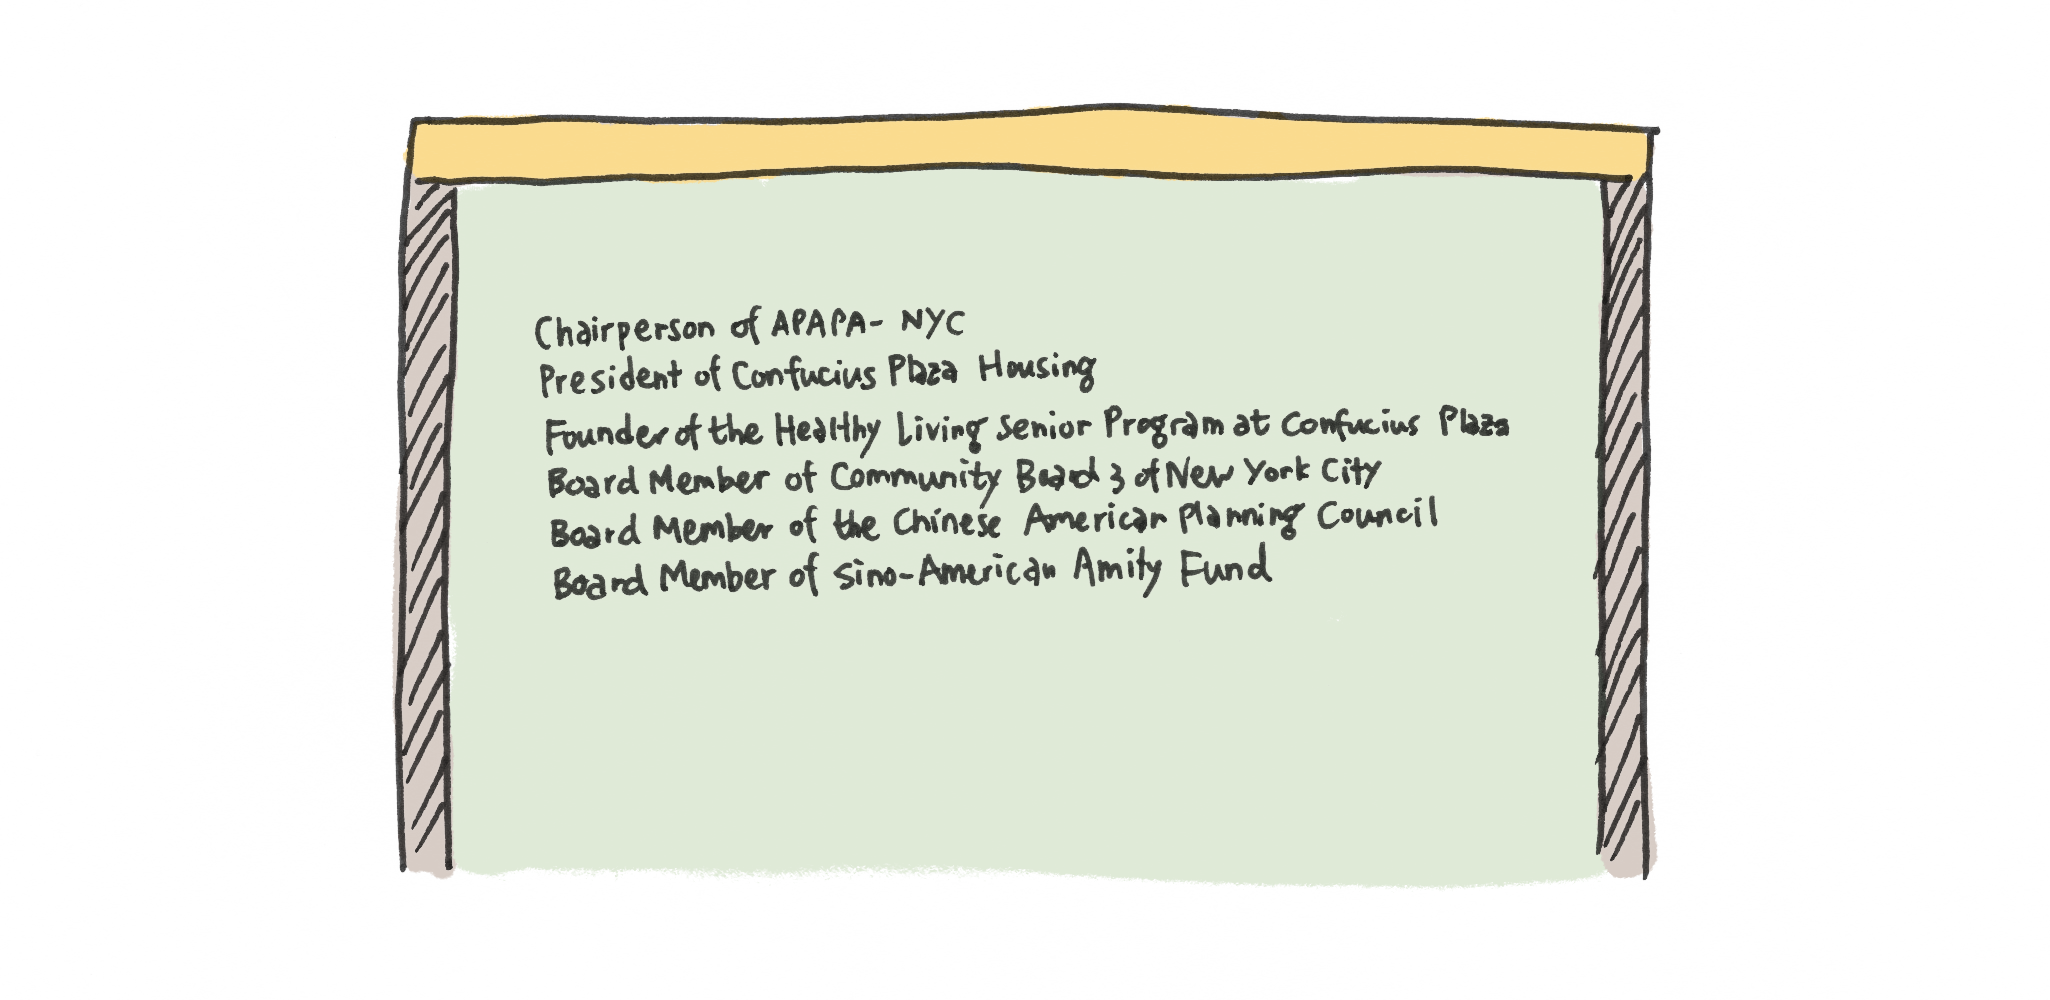 Chairperson of APAPA- NYC
President of Confucius Plaza Housing
Founder of the Healthy Living Senior Program at Confucius Plaza
Board Member of Community Board 3 of New York City
Board Member of the Chinese American Planning Council
Board Member of Sino-American Amity Fund